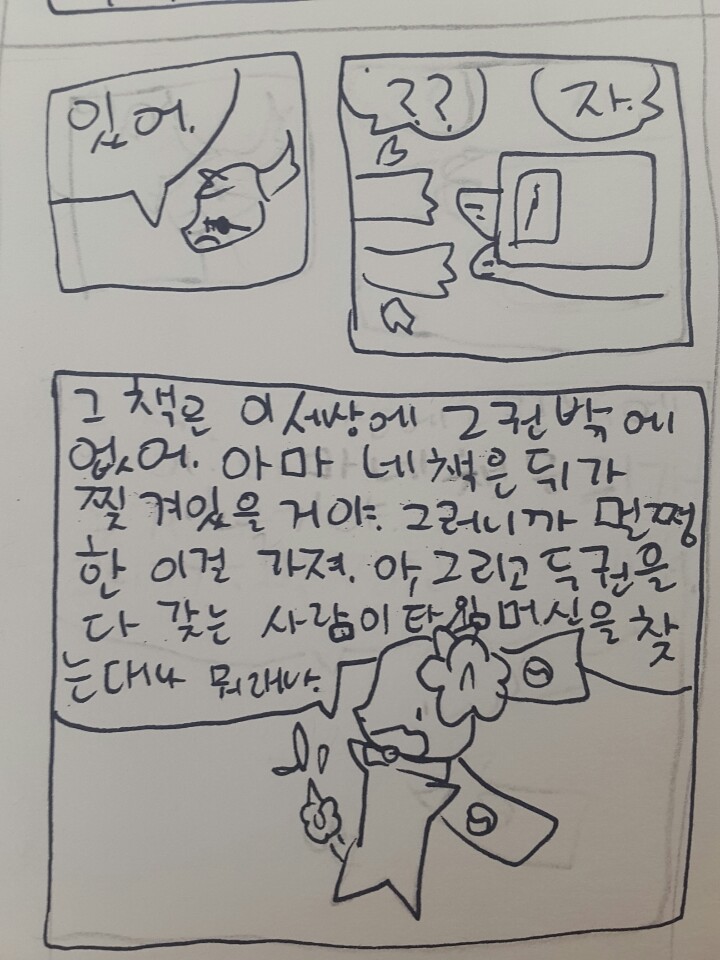 있어.
??
자.
그 책은 이 세상에 그 권 밖에
없어. 아마 네 책은 뒤가
찢겨있을 거야. 그러니까 멀쩡
한 이걸 가져. 아, 그리고 두권을
다 갖는 사람이 타임머신을 찾
는대나 뭐래나.